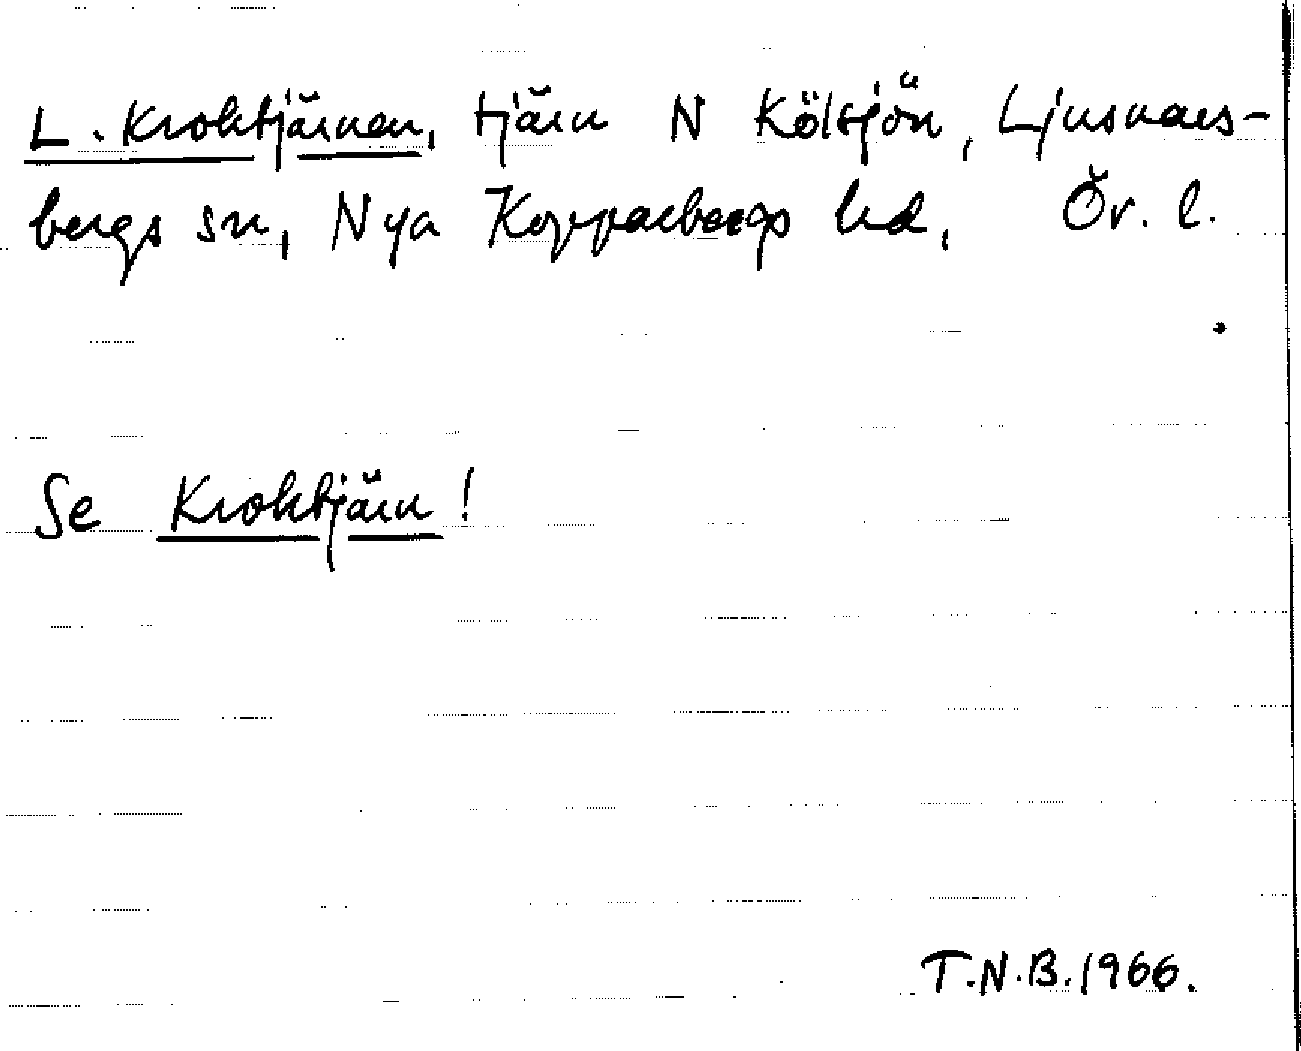 L. Kroktjärnen, tjärn N Költjön, Ljusnars-
bergs sn, Nya Kopparbergs hd, Ör. l.
Se Kroktjärn!
T.N.B. 1966.